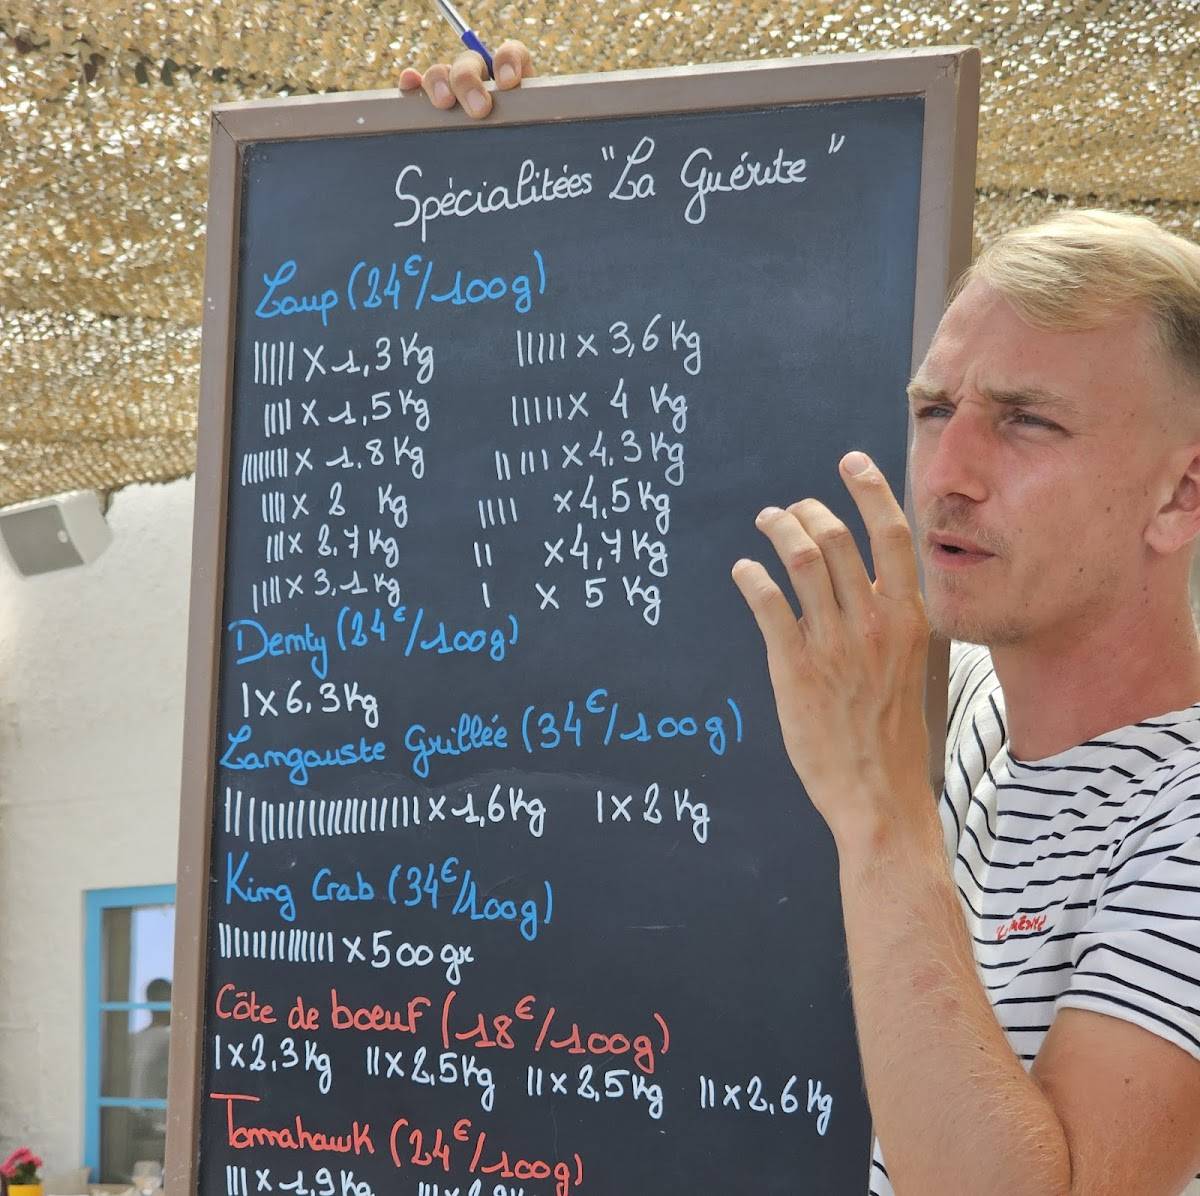 Spécialitées "La Guérite"
Loup (24€/100g)
||||| x 1,3 Kg |||||| x 3,6 Kg
|||| x 1,5 Kg |||||| x 4 Kg
|||||||| x 1.8 Kg ||||| x 4,3 Kg
|||| x 2 Kg |||| x 4,5 Kg
||| x 2.7 Kg || x 4,7 Kg
|||| x 3,1 Kg | x 5 Kg
Demty (24€/100g)
| x 6,3 Kg
Langouste Grillée (34€/100g)
x 1,6 Kg | x 2 Kg
King Crab (34€/100g)
x 500 gr
Côte de boeuf (18€/100g)
| x 2,3 Kg || x 2,5 Kg || x 2,5 Kg || x 2,6 Kg
Tomahawk (24€/100g)
||| x 1,9 Kg